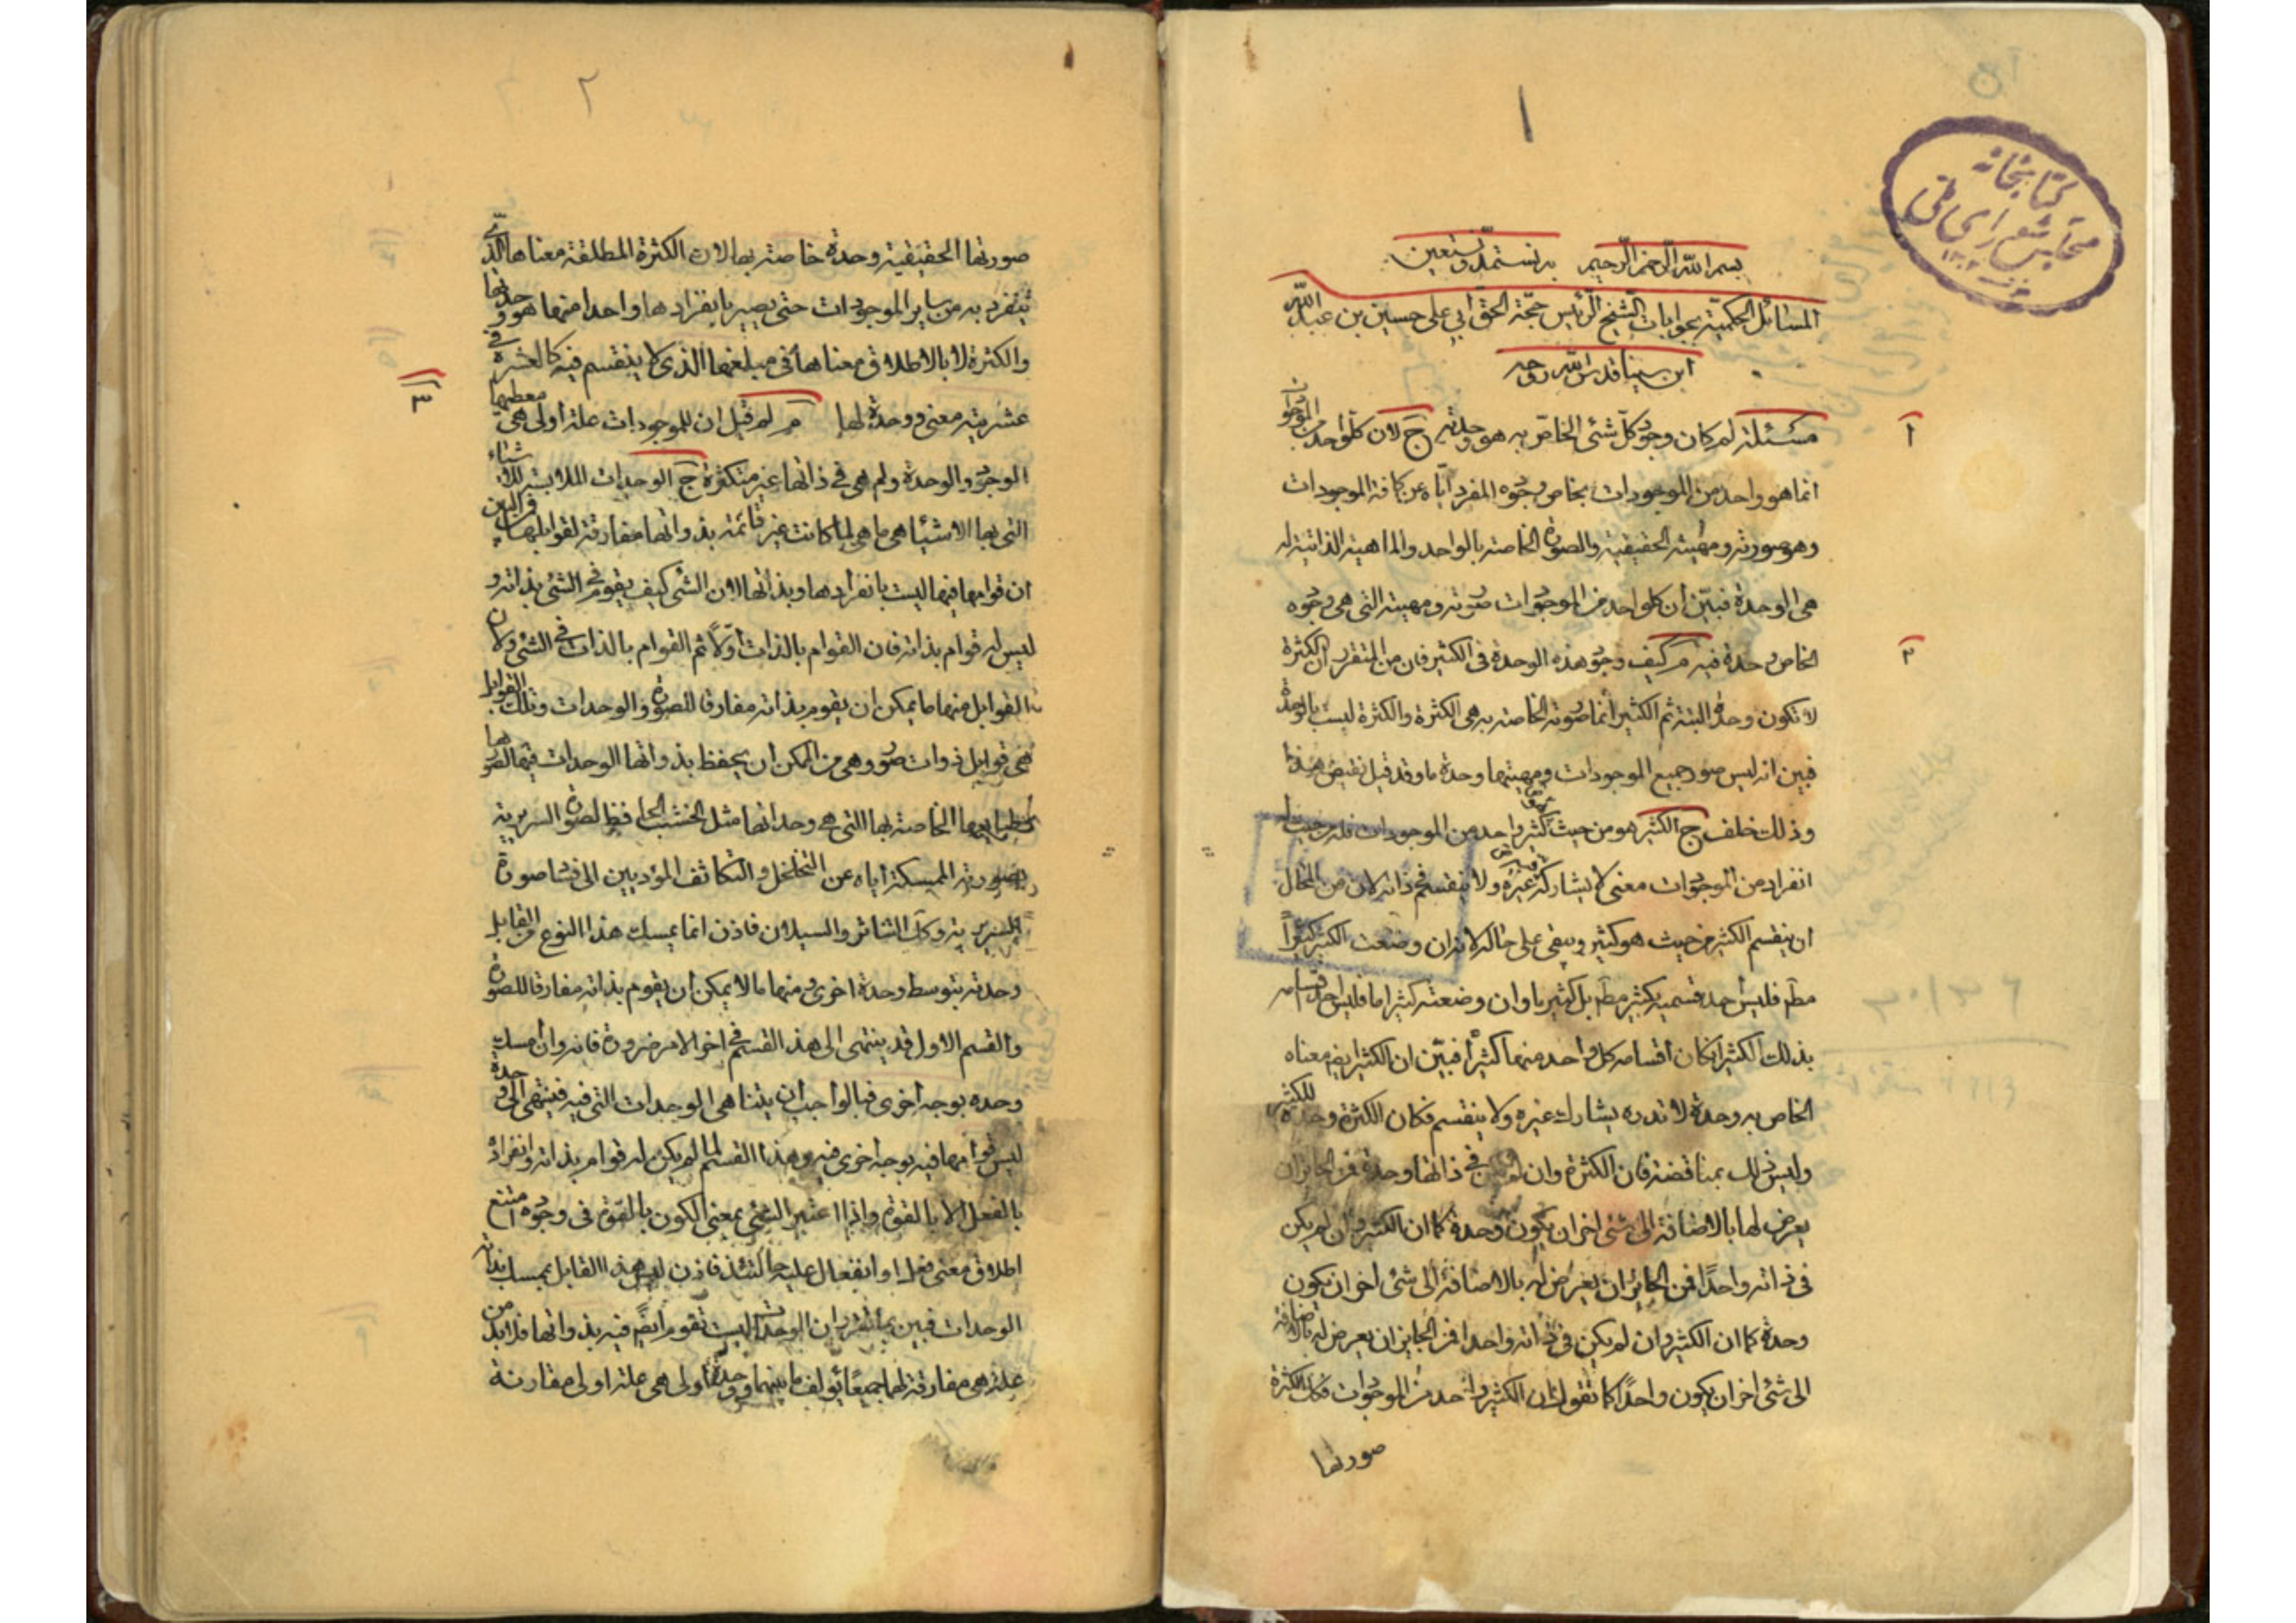 ١
كتابخانه
مجلس شورای ملی
بسم الله الرحمن الرحيم به نستمد و نستعين
المسائل الحكمية بجوابات الشيخ الرئيس حجة الحق أبي علي حسين بن عبد الله
ابن سينا قدس الله روحه
مسئلة لم كان وجود كل شئ الخاص به هو وحدته ج لان كل واحد من الموجودات
انما هو واحد من الموجودات بخاص وجوده المفرد اياه عن كافة الموجودات
وهو صورته ومهيته الحقيقية والصورة الخاصة بالواحد والماهية الذاتية له
هى الوحدة فبين أن كل واحد من الموجودات صورته ومهيته التى هى وجوده
الخاص وحدة فيه م كيف وجود هذه الوحدة فى الكثير فان من المتقرر ان الكثرة
لا تكون وحدة البتة ثم الكثير انما صورته الخاصة به هى الكثرة والكثرة ليست بالوحدة
فبين انه ليس صور جميع الموجودات ومهيتها وحدة ما وقد قيل نقيض هذا
وذلك خلف ج الكثير هو من حيث كثير واحد من الموجودات فله من حيث
انفراده من الموجودات معنى لا يشاركه غيره ولا ينقسم فى ذاته لان من المحال
ان ينقسم الكثير من حيث هو كثير ويبقى على حاله لانه ان وضعت الكثير كثيرا
مطم فليس احد قسميه بكثير مطم بل كثير ما وان وضعته كثيرا ما فليس احد اقسامه
بذلك الكثير ان كان أقسامه كل واحد منها كثيرا فبين ان الكثير ايض معناه
الخاص به وحدة لا ندره يشارك غيره ولا ينقسم فكان الكثرة وحدة للكثير
وليس ذلك بمناقضة فان الكثرة وان لم يكن فى ذاتها وحدة فمن الجائز ان
يعرض لها بالاضافة الى شئ اخر ان يكون وحدة كما ان الكثير وان لم يكن
فى ذاته واحدا فمن الجائز ان يعرض له بالاضافة الى شئ اخر ان يكون
وحدة كما ان الكثير وان لم يكن فى ذاته واحدا فمن الجايز ان يعرض له بالاضافة
الى شئ اخر ان يكون واحدا كما نقول ان الكثير واحد من الموجودات فكك الكثرة
صورتها
٢
صورتها الحقيقية وحدة خاصة بها لان الكثرة المطلقة معناها الذى
تنفرد به من ساير الموجودات حتى يصير بانفرادها واحدا منها هو وحدتها
والكثرة لا بالاطلاق معناها فى مبلغها الذى لا ينقسم فيه كالعشرة فى
عشريته معنى ووحدة لها م لم قيل ان للموجودات علة أولى هى معطيها
الوجود والوحدة ولم هى فى ذاتها غير متكثرة ج الوحدات الملابسة للاشياء
التى بها الاشيا هى ما هى لما كانت غير قائمة بذواتها مفارقة لقوابلها فمن البين
ان قوامها فيها ليست بانفرادها وبذاتها لان الشى كيف يقوم فى الشئ بذاته و
ليس له قوام بذاته فان القوام بالذات أولا ثم القوام بالذات فى الشئ ولان
القوابل منها ما يمكن ان يقوم بذاته مفارقا للصورة والوحدات وتلك القوابل
هى قوابل ذوات صور وهى من الممكن أن يحفظ بذواتها الوحدات فيها لصورها
بطبايعها الخاصة بها التى هى وحداتها مثل الخشب الحافظ لصورة السريرية
بصورته الممسكة اياه عن التخلخل والتكاثف المؤديين الى فساد صورة
السريرية وكك التناثر والسيلان فاذن انما يمسك هذا النوع من القابل
وحدته بتوسط وحدة اخرى ومنها ما لا يمكن ان يقوم بذاته مفارقا للصورة
والقسم الاول قد ينتهى الى هذ القسم فى اخر الامر ضرورة فانه وان امسك
وحده بوجه أخرى فبالواجب ان يتناهى الوحدات التى فيه فينتهى الى وحدة
ليس قوامها فيه بوجه أخرى فيه وهذا القسم لما لم يكن له قوام بذاته وانفراده
بالفعل الا بالقوة واذا اعتبر الشئ بمعنى الكون بالقوة فى وجوده امتنع
اطلاق معنى فعل او انفعال عليه حالتئذ فاذن ليس هذا القابل بمسك بذاته
الوحدات فبين بما تقرر ان الوحدات ليست تقوم ايضا فيه بذواتها فلابد من
علة هى مفارقة لهما جميعا يؤلف ما بينهما ووحدة أولى هى علة اولى مقارنة
٣